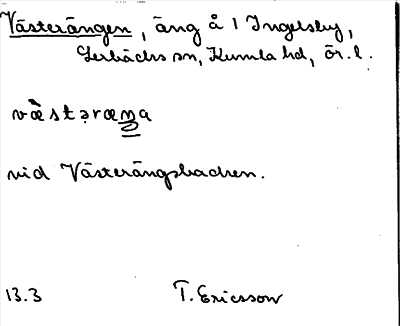 Västerängen, äng å 1 Ingelsby,
Lerbäcks sn, Kumla hd, ör. l.
vid Västerängsbacken.
13.3 T. Ericsson